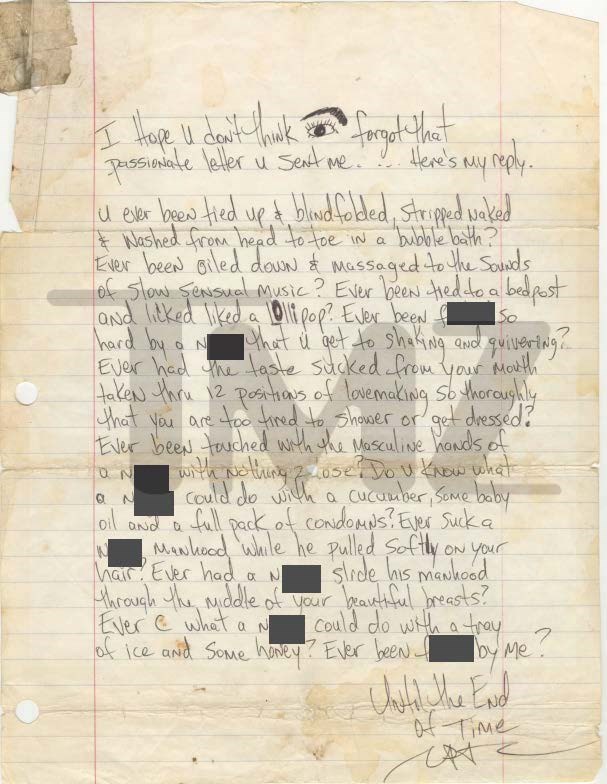 I Hope u don't think forgot that
passionate letter u sent me. ... Here's my reply.
u ever been tied up & blindfolded, stripped naked
& washed from head to toe in a bubble bath?
Ever been oiled down & massaged to the Sounds
of Slow Sensual Music? Ever been tied to a bedpost
and licked liked a lollipop? Ever been f so
hard by a N that u get to shaking and quivering?
Ever had the taste sucked from your mouth
taken thru 12 positions of lovemaking so thoroughly
that you are too tired to shower or get dressed?
Ever been touched with the masculine hands of
a N with nothing 2 lose? Do u know what
a N could do with a cucumber, some baby
oil and a full pack of condomns? Ever suck a
N manhood while he pulled softly on your
hair? Ever had a N slide his manhood
through the middle of your beautiful breasts?
Ever C what a N could do with a tray
of ice and some honey? Ever been f by me?
Until the End
of Time
TMZ